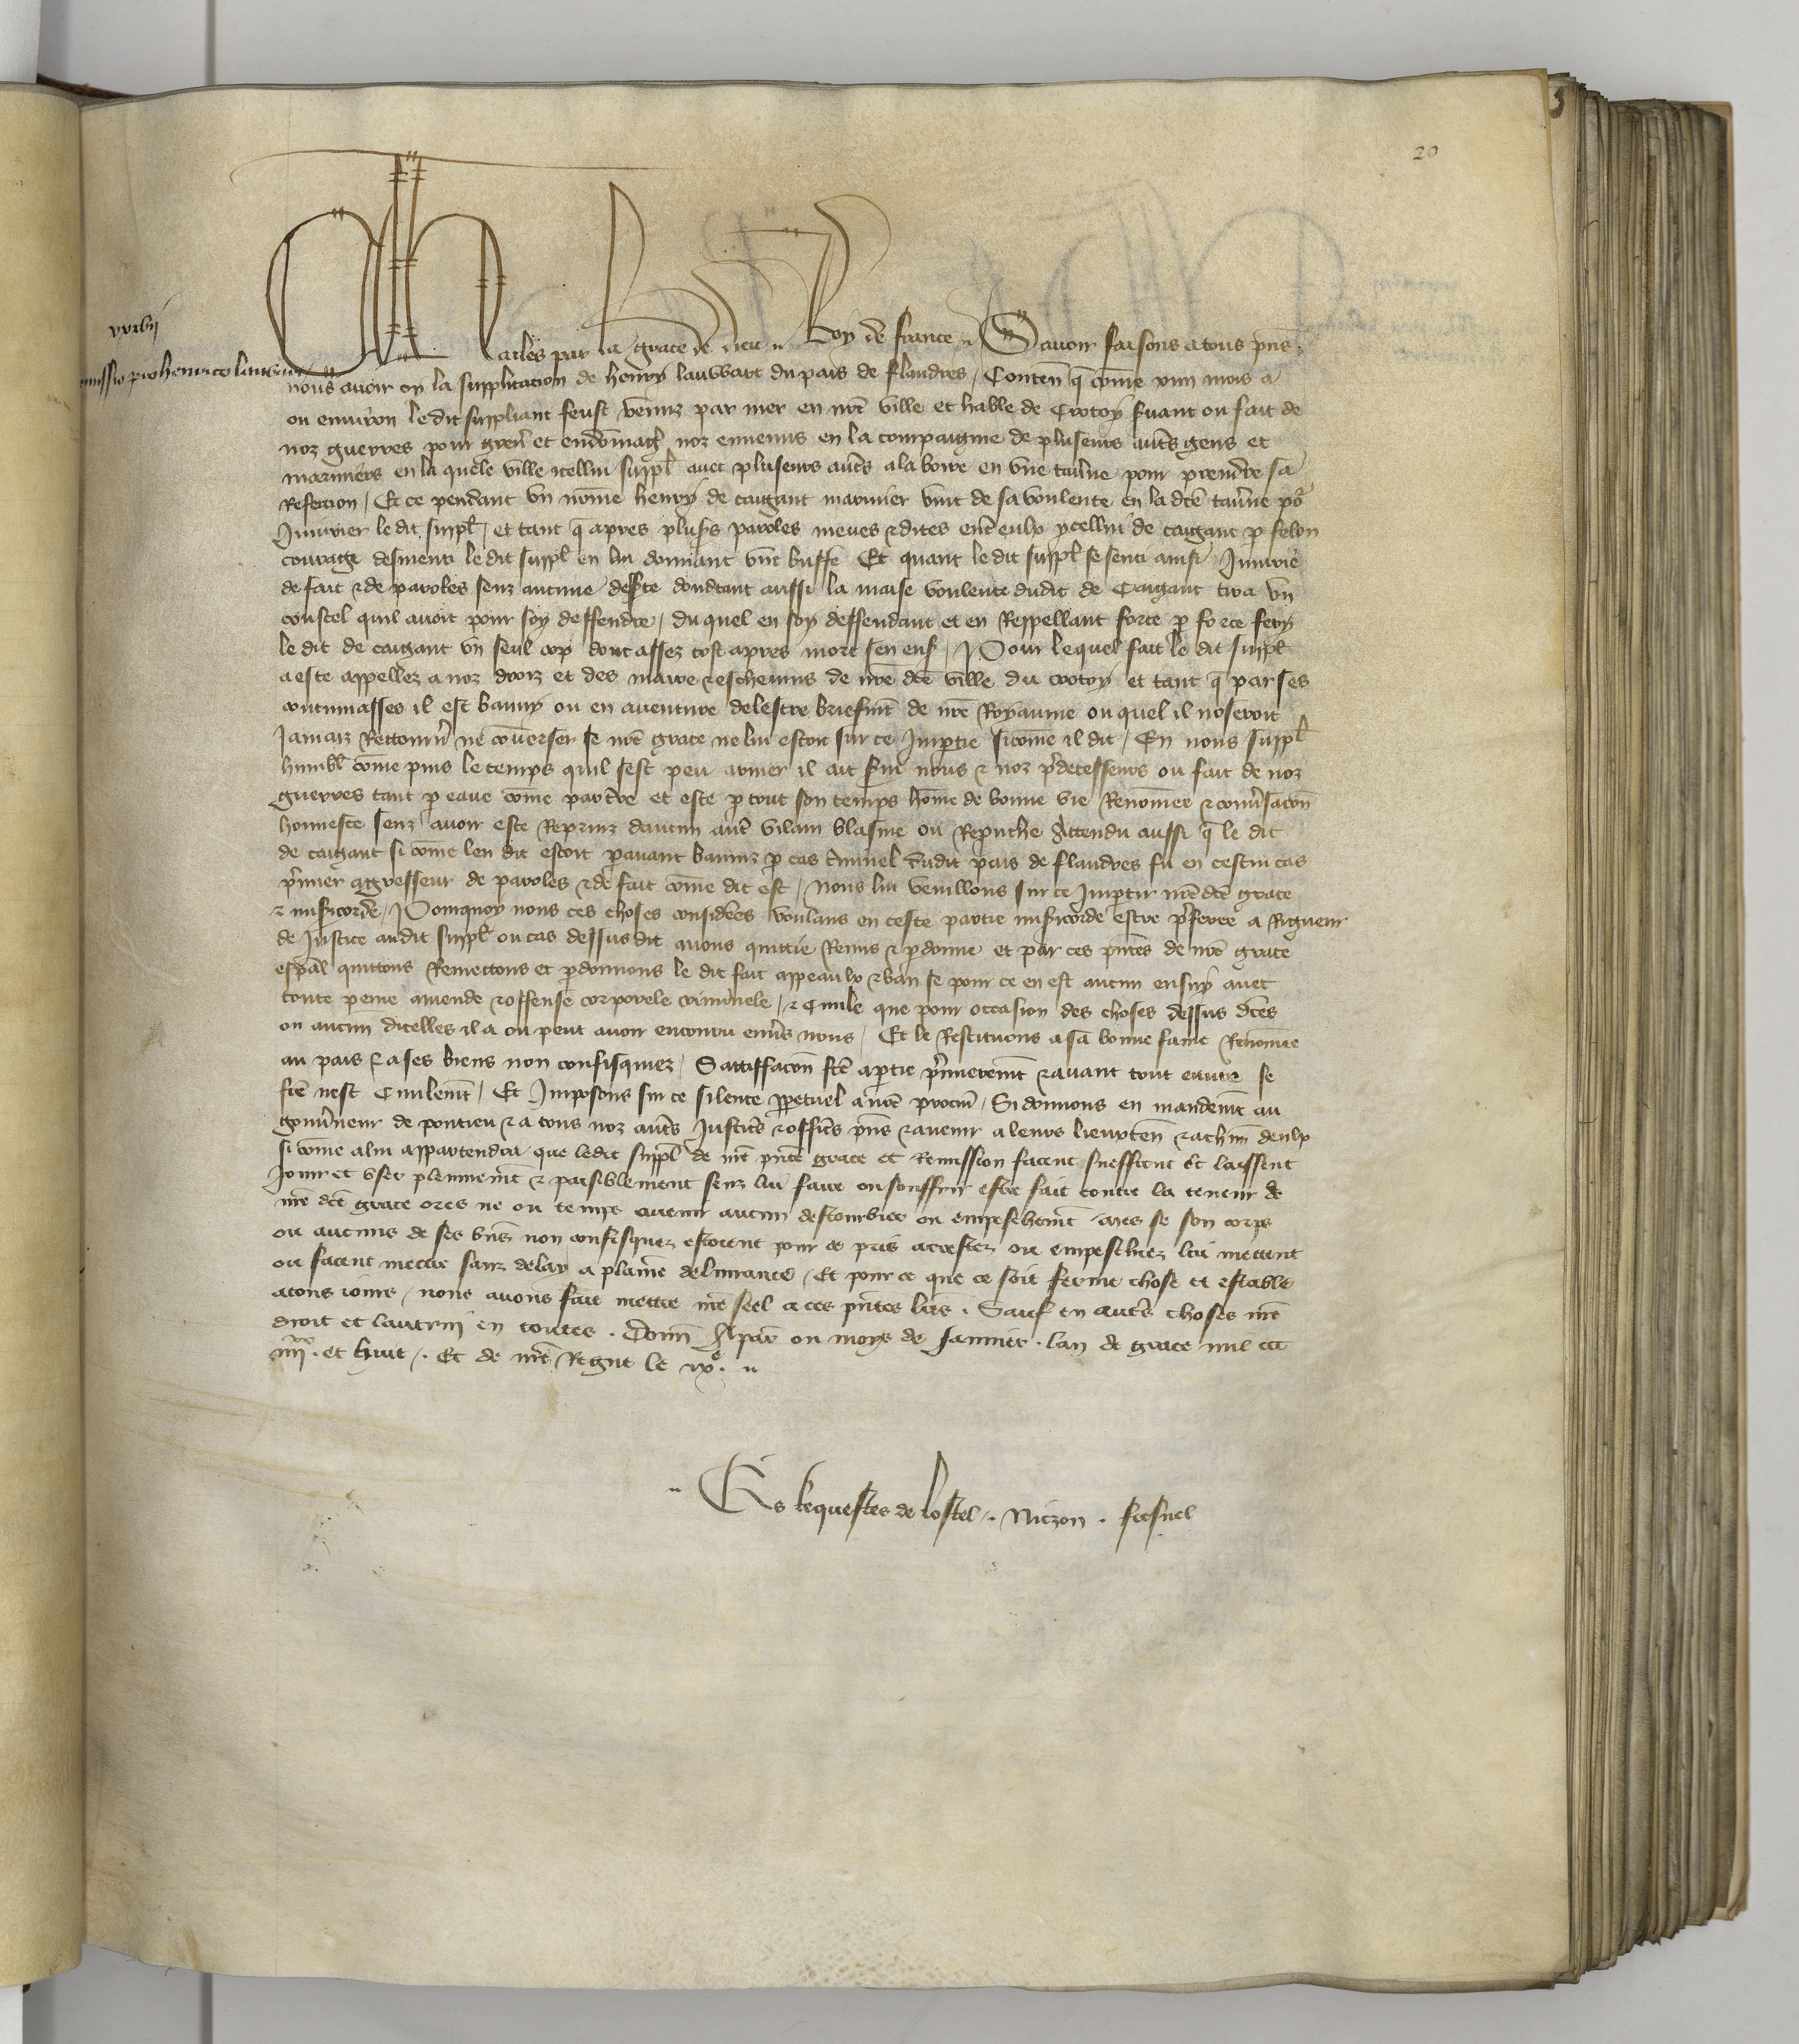 20
xxvij
missio pro henrico lauwart
Charles par la grace de dieu Roy de france Sauoir faisons a tous pñs
nous auoir oy la supplicacion de henry lauwart du pais de flandres / Conteñ q̃ cõme xviij mois a
ou enuiron le dit suppliant feust venuz par mer en nr̃e ville et hable de Crotoy s̾uant ou fait de
noz guerres pour greu̾ et endõmag̾ noz ennemis en la compaignie de pluseurs aut̃s gens et
mariniers en la quele ville icellui suppl̾ auec pluseurs aut̃s ala boire en vne tau̾ne pour prendre sa
Refection / Et ce pendant vn nõme henry de caigant marinier vint de sa voulente en la dc̃e tau̾ne po̾
Iniurier le dit suppl̾ / et tant q̃ apres plus̾s paroles meues & dites ent̾ eulx ycellui de caigant p felon
courage desmenti le dit suppl̾ en lui donnant vne buffe Et quant le dit suppl̾ se senti ainsi Iniurie
de fait & de paroles senz aucune dess̾te doubtant aussi la maise voulente dudit de Caigant tira vn
coustel quil auoit pour soy deffendre / du quel en soy deffendant et en Reppellant force p force fery
le dit de caigant vn seul cop dont assez tost apres mort sen ens̾ / Pour lequel fait le dit suppl̾
a este appellez a noz droiz et des maire & escheuins de nr̃e dc̃e ville du crotoy et tant q̃ par ses
contumasses il est banny ou en auenture de lestre briefmt̃ de nr̃e Royaume ou quel il noseroit
Jamaiz Rettourn̾ ne cõuerser se nr̃e grace ne lui estoit sur ce Impartie si cõme il dit / En nous suppl̾
humbl̾ cõme puis le temps quil sest peu armer il ait s̾ui nous & noz p̾decesseurs ou fait de noz
guerres tant p eaue cõme par t̾re et este p tout son temps hõme de bonne vie Renõmee & conu̾sacõn
honneste senz auoir este Reprinz daucun aut̾ vilain blasme ou Reprouche Attendu aussi q̃ le dit
de caigant si cõme len dit estoit p auant banniz p cas c̾minel dudit pais de flandres fu en cestui cas
p̾mier aggresseur de paroles & de fait cõme dit est / nous lui veuillons sur ce Impartir nr̃e dc̃e grace
& mis̾icorde / Pourquoy nous ces choses consider̃es voulans en ceste partie mis̾icorde estre p̾feree a Rigueur
de Justice audit suppl̾ ou cas dessusdit auons quittie Remis & p̱donne et par ces pñtes de nr̃e grace
esp̃al quittons Remettons et p̱donnons le dit fait appeaulx & ban se pour ce en est aucun ensuy auec
toute peine amende & offense corporele criminele / & Ciuile que pour occasion des choses dessus dc̃es
ou aucune dicelles il a ou peut auoir encouru enu̾s nous / Et le Restituons a sa bonne fame Renõmee
au pais & a ses biens non confisquiez / Sattiffacõn fc̃e a partie p̾mieremt̃ & auant tout euure se
fc̃e nest Ciuilemt̃ / Et Imposons sur ce silence p̱petuel a nr̃e procur̾ / Si donnons en mandemt̃ au
gouu̾neur de pontieu & a tous noz aut̃s Justic̃s & offic̃s pñs & auenir a leurs lieuxteñ & a chũn deulx
si cõme a lui appartendra que ledit suppl̾ de nr̃e pñte grace et Remission facent sueffrent et laissent
Jouir et vser plainemt̃ & paisiblement senz lui faire ou souffrir estre fait contre la teneur de
nr̃e dc̃e grace ores ne ou temps auenir aucun destourbier ou empeschemt̃ / mes se son corps
ou aucuns de ses biẽs non confisquez estoient pour ce pris arrestez ou empeschiez lui mettent
ou facent mettre sanz delay a plaine deliurance / Et pour ce que ce soit ferme chose et estable
a tous iours / nous auons fait mettre nr̃e seel a ces pñtes lr̃es . Sauf en aut̃s choses nr̃e
droit et lautruy en toutes . Donñ A par̃ ou moys de Januier . lan de grace mil ccc
iiijxx . et huit / . Et de nr̃e Regne le ixe .
Es Requestes de lostel / . Niczon . fresnel